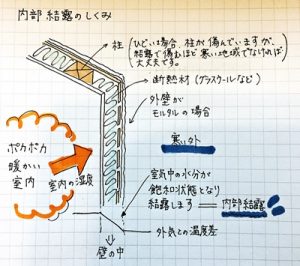 内部結露のしくみ
柱
(ひどい場合、柱が傷んでいますが、
結露で傷むほど寒い地域でなければ
大丈夫です。)
断熱材(グラスウールなど)
外壁が
モルタルの場合
寒い外
ポカポカ
暖かい
室内
室内の湿度
空気中の水分が
飽和状態となり
結露します = 内部結露
外気との温度差
壁の中